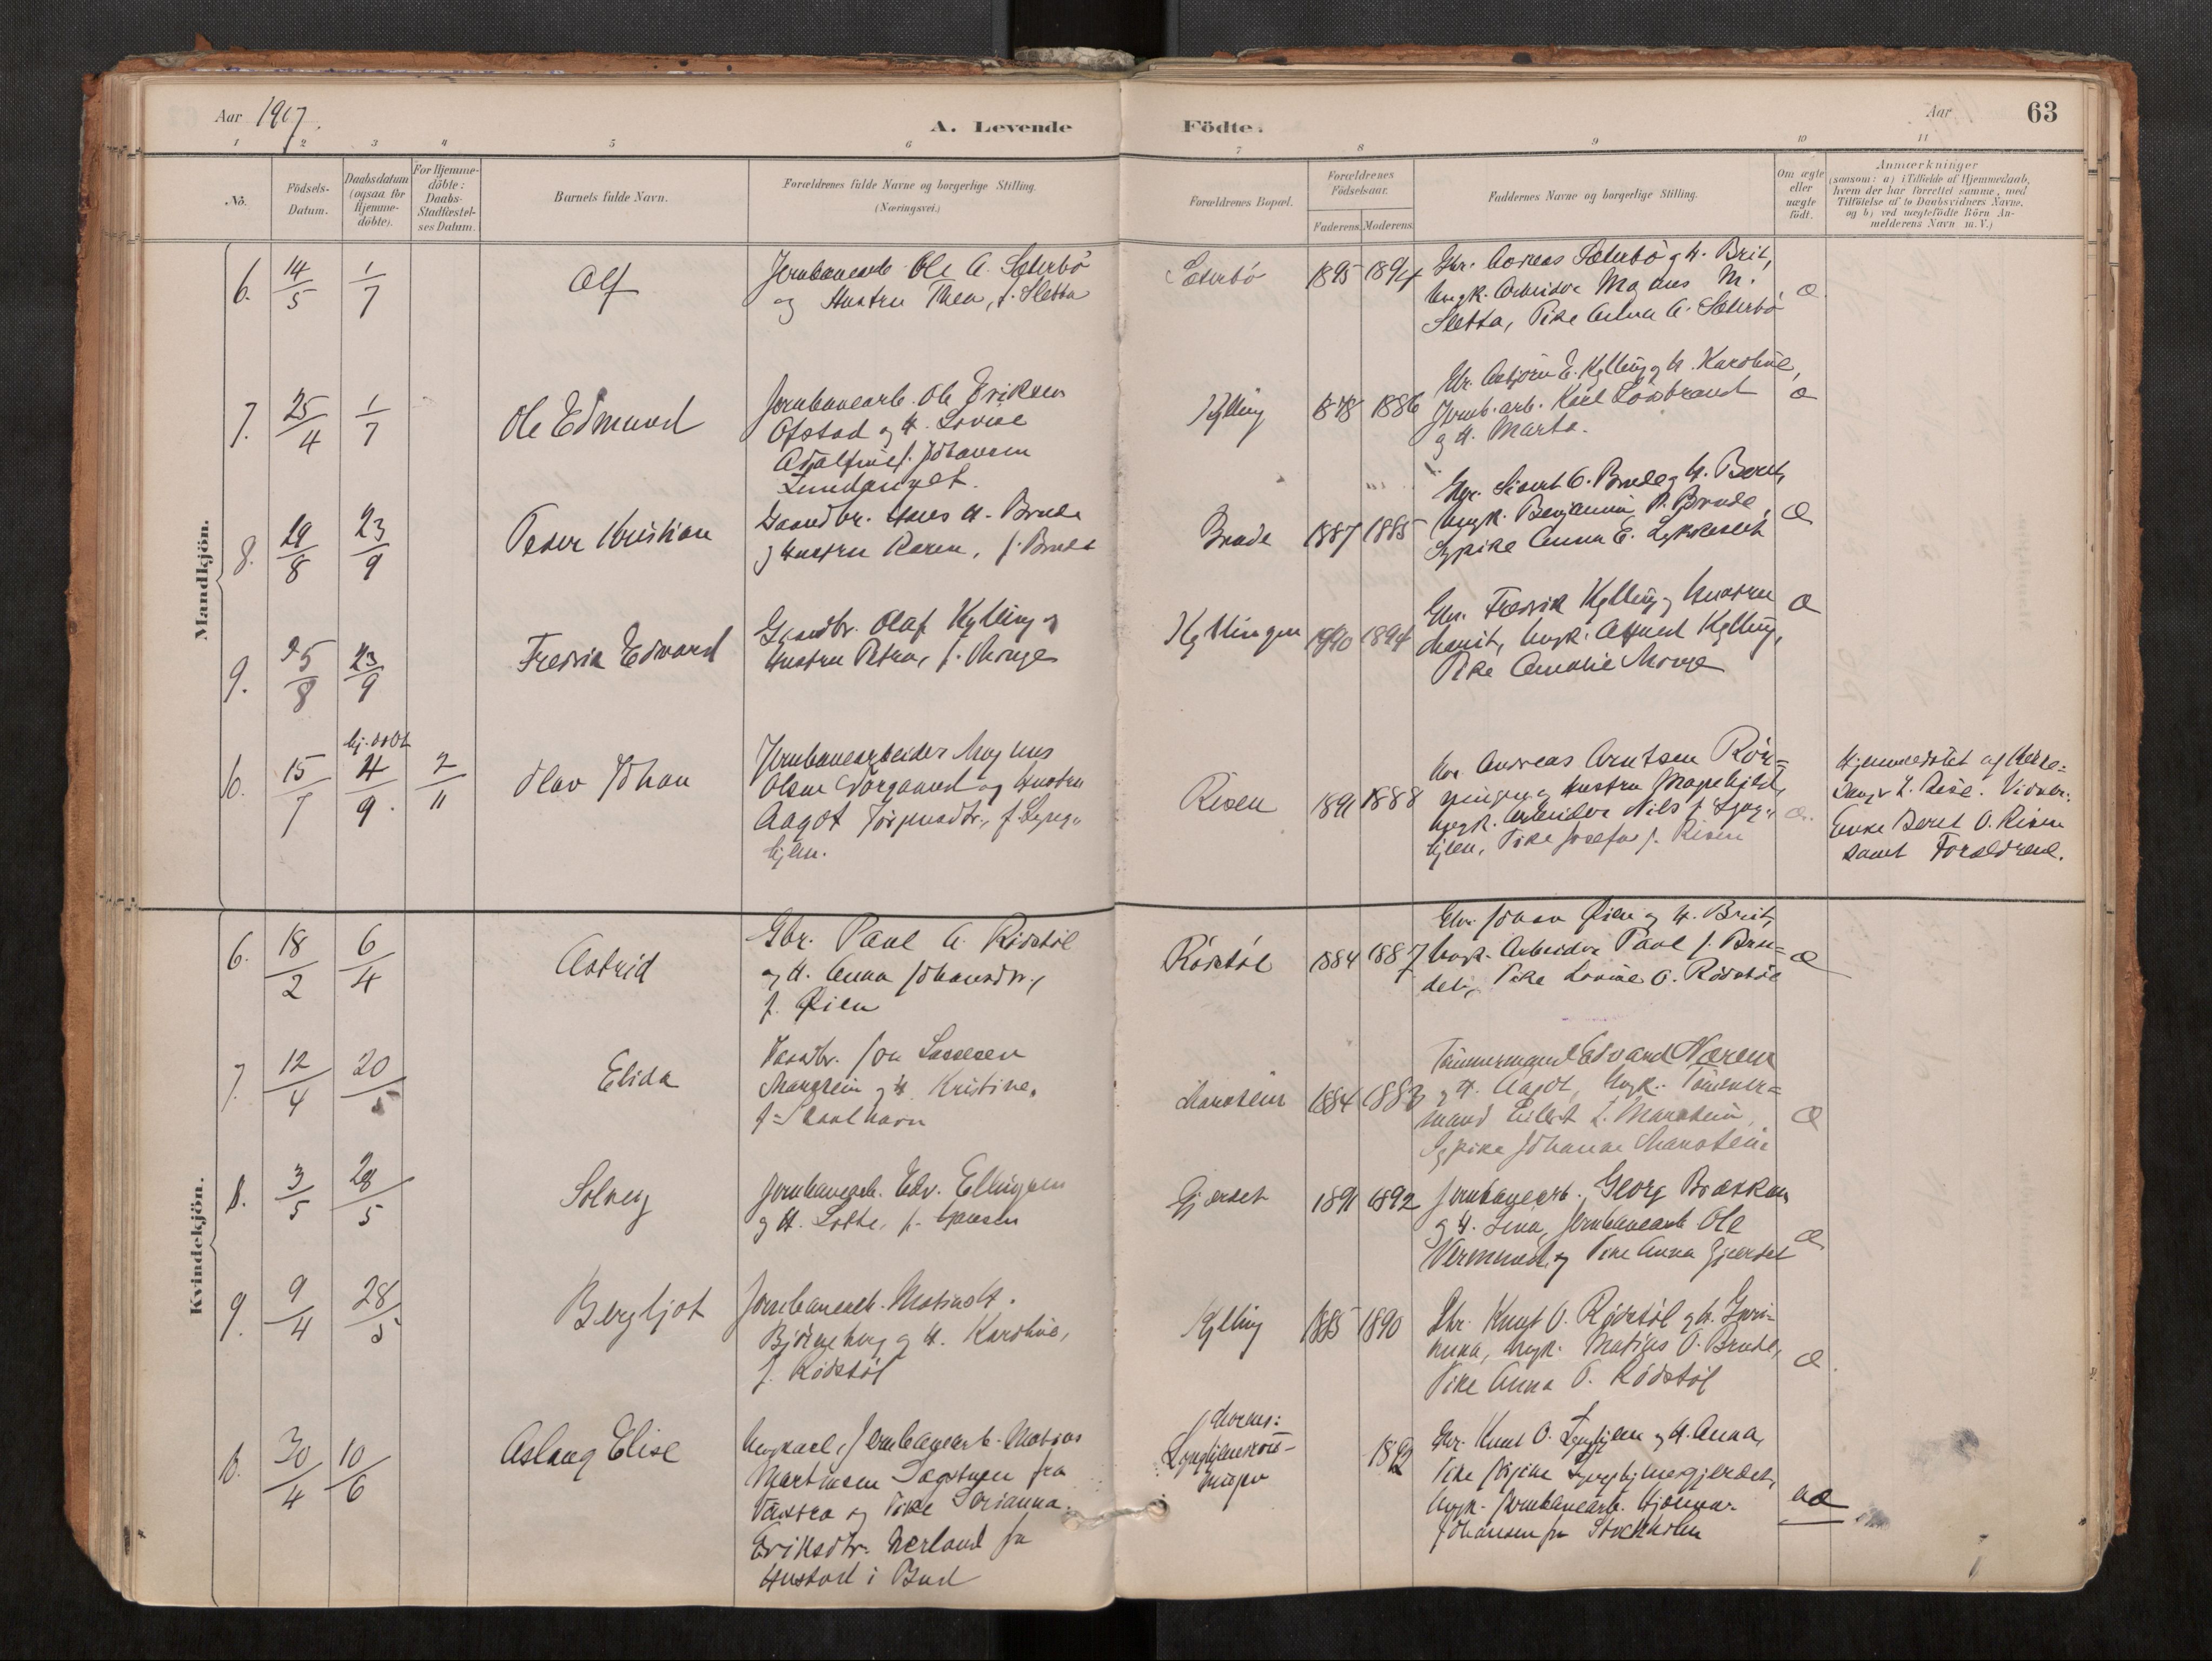 Aar 1917.
A. Levende
Födte.
Aar
63
1 2 3 4 5 6 7 8 9 10 11
No.
Födsels-
Datum.
Daabsdatum
(ogsaa for
Hjemme-
döbte).
For Hjemme-
döbte:
Daabs-
Stadfæstel-
ses Datum.
Barnets fulde Navn.
Forældrenes fulde Navne og borgerlige Stilling.
(Næringsvei.)
Forældrenes Bopæl.
Forældrenes
Födselsaar.
Faderens. Moderens.
Faddernes Navne og borgerlige Stilling.
Om ægte
eller
uægte
født.
Anmærkninger
(saasom: a) i Tilfælde af Hjemmedaab,
hvem der har forrettet samme, med
Tilföielse af to Daabsvidners Navne,
og b) ved uægtefödte Börn An-
melderens Navn m. V.)
Mandkjön.
6. 14/5 1/7 Alf
Jernbanearb. Ole A. Sæterbö
og Hustru Thea, f. Sletta
Sæterbö 1895 1894
Gbr. Andreas Sæterbö og H. Brit,
Ungk. Arbeider Magnus M.
Sletta, Pike Anna A. Sæterbö
æ
7. 25/4 1/7 Ole Edmund
Jernbanearb. Ole Eriksen
Ofstad og H. Lovise
Adolfine f. Johansen
Kylling 1878 1886
Gbr. Asbjörn E. Kylling og H. Karoline,
Jernb.arb. Karl
og H. Marta.
æ
8. 29/8 23/9 Peder Kristian
Gaardbr. Hans H. Brude
og Hustru Karen, f. Brude
Brude 1887 1885
Gbr. Sivert O. Brude og H. Beret,
Ungk. Benjamin P. Brude,
Sypike Anna E.
æ
9. 25/8 23/9 Fredrik Edvard
Gaardbr. Olaf Kylling og
Hustru Petra, f. Monge
Kyllingen 1890 1894
Gbr. Fredrik Kylling og Hustru
Marit, Ungk. Alfred Kylling,
Pike Amalie Monge
æ
10. 15/7 hj.döbt 4/9. 2/11 Olav Johan
Jernbanearbeider Magnus
Olsen Norgaard og Hustru
Aagot Jörgensdtr., f. Lyng-
hjem.
Risen 1891 1888
Gbr. Andreas Arntsen
og Hustru Magnhild,
Ungk. Arbeider Nils J. Lyng-
hjem, Pike Josefa J. Risen
æ.
Hjemmedöbt af Kirke-
sanger L. Rise. Vidner:
Enke Beret O. Risen
samt Forældrene.
Kvindekjön.
6. 18/2 6/4 Astrid
Gbr. Paul A. Rödstöl
og H. Anna Johansdtr.,
f. Øien
Rödstöl 1884 1887
Gbr. Johan Øien og H. Brit,
Ungk. Arbeider Paul J. Bru-
deli, Pike Lovise O. Rödstöl
æ
7. 12/4 20/5 Elida
Jon Lassesen
Marstein og H. Kristine,
f. Skaalhavn
Marstein 1884 1883
Tömmermand Edvard Næren
og H. Aagot, Ungk. Tömmer-
mand Eilert L. Marstein,
Sypike Johanne Marstein
æ
8. 3/5 28/5 Solveig
Jernbanearb. Edv. Ellingsen
og H. Lotte, f. Hansen
Gjerdet 1891 1892
Jernbanearb. Georg
og H. Lina, Jernbanearb. Ole
Vermund, og Pike Anna Gjerdet
æ
9. 9/4 28/5 Bergljot
Jernbanearb.
Björneberg og H. Karoline,
f. Rödstöl
Kylling 1885 1890
Gbr. Knut O. Rödstöl og H. Guri-
anna, Ungk. Matias O. Brude,
Pike Anna P. Rödstöl
æ.
10. 30/4 10/6 Aslaug Elise
Ungkarl, Jernbanearb. Matias
Martinsen fra
og Pike Sorianna
Eriksdtr. Nerland fra
Hustad i Bud
Morens:
1892
Gbr. Knut O. Lynghjem og H. Anna,
Pike
Ungk. Jernbanearb. Hjalmar
Johansen fra Stockholm
uæ